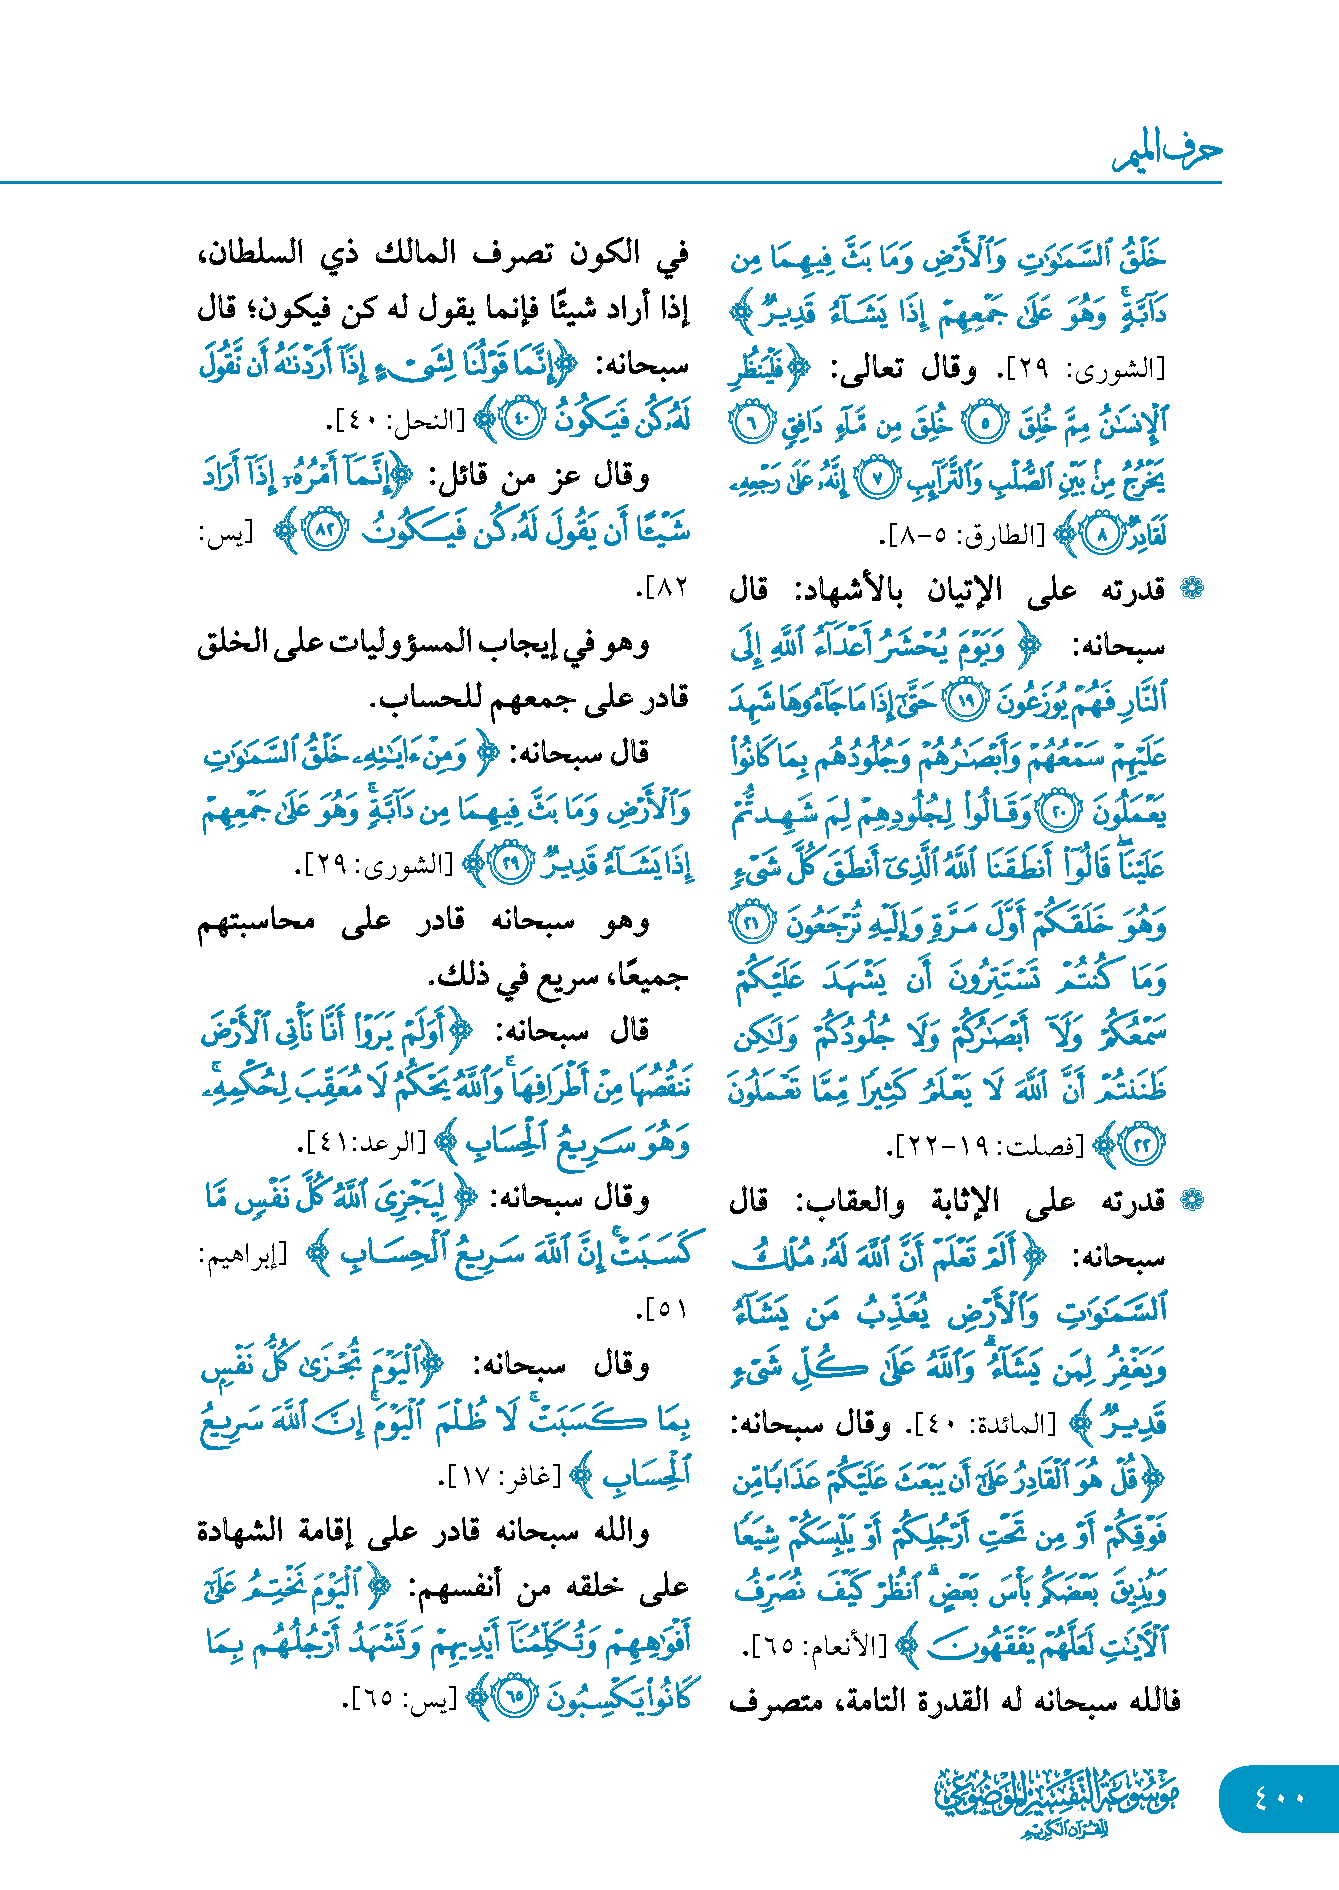 حرف الميم
خَلْقُ ٱلسَّمَٰوَٰتِ وَٱلْأَرْضِ وَمَا بَثَّ فِيهِمَا مِن
دَآبَّةٍ ۚ وَهُوَ عَلَىٰ جَمْعِهِمْ إِذَا يَشَآءُ قَدِيرٌ ﴾
[الشورى: ٢٩]. وقال تعالى: ﴿ فَلْيَنظُرِ
ٱلْإِنسَٰنُ مِمَّ خُلِقَ ٥ خُلِقَ مِن مَّآءٍ دَافِقٍ ٦
يَخْرُجُ مِنۢ بَيْنِ ٱلصُّلْبِ وَٱلتَّرَآئِبِ ٧ إِنَّهُۥ عَلَىٰ رَجْعِهِۦ
لَقَادِرٌ ٨ ﴾ [الطارق: ٥-٨].
۞ قدرته على الإتيان بالأشهاد: قال
سبحانه: ﴿ وَيَوْمَ يُحْشَرُ أَعْدَآءُ ٱللَّهِ إِلَى
ٱلنَّارِ فَهُمْ يُوزَعُونَ ١٩ حَتَّىٰٓ إِذَا مَا جَآءُوهَا شَهِدَ
عَلَيْهِمْ سَمْعُهُمْ وَأَبْصَٰرُهُمْ وَجُلُودُهُم بِمَا كَانُوا۟
يَعْمَلُونَ ٢٠ وَقَالُوا۟ لِجُلُودِهِمْ لِمَ شَهِدتُّمْ
عَلَيْنَا ۖ قَالُوٓا۟ أَنطَقَنَا ٱللَّهُ ٱلَّذِىٓ أَنطَقَ كُلَّ شَىْءٍ
وَهُوَ خَلَقَكُمْ أَوَّلَ مَرَّةٍ وَإِلَيْهِ تُرْجَعُونَ ٢١
وَمَا كُنتُمْ تَسْتَتِرُونَ أَن يَشْهَدَ عَلَيْكُمْ
سَمْعُكُمْ وَلَآ أَبْصَٰرُكُمْ وَلَا جُلُودُكُمْ وَلَٰكِن
ظَنَنتُمْ أَنَّ ٱللَّهَ لَا يَعْلَمُ كَثِيرًا مِّمَّا تَعْمَلُونَ
٢٢ ﴾ [فصلت: ١٩-٢٢].
۞ قدرته على الإثابة والعقاب: قال
سبحانه: ﴿ أَلَمْ تَعْلَمْ أَنَّ ٱللَّهَ لَهُۥ مُلْكُ
ٱلسَّمَٰوَٰتِ وَٱلْأَرْضِ يُعَذِّبُ مَن يَشَآءُ
وَيَغْفِرُ لِمَن يَشَآءُ ۗ وَٱللَّهُ عَلَىٰ كُلِّ شَىْءٍ
قَدِيرٌ ﴾ [المائدة: ٤٠]. وقال سبحانه:
﴿قُلْ هُوَ ٱلْقَادِرُ عَلَىٰٓ أَن يَبْعَثَ عَلَيْكُمْ عَذَابًا مِّن
فَوْقِكُمْ أَوْ مِن تَحْتِ أَرْجُلِكُمْ أَوْ يَلْبِسَكُمْ شِيَعًا
وَيُذِيقَ بَعْضَكُم بَأْسَ بَعْضٍ ۗ ٱنظُرْ كَيْفَ نُصَرِّفُ
ٱلْءَايَٰتِ لَعَلَّهُمْ يَفْقَهُونَ ﴾ [الأنعام: ٦٥].
فالله سبحانه له القدرة التامة، متصرف
في الكون تصرف المالك ذي السلطان،
إذا أراد شيئًا فإنما يقول له كن فيكون؛ قال
سبحانه: ﴿إِنَّمَا قَوْلُنَا لِشَىْءٍ إِذَآ أَرَدْنَٰهُ أَن نَّقُولَ
لَهُۥ كُن فَيَكُونُ ٤٠ ﴾ [النحل: ٤٠].
وقال عز من قائل: ﴿إِنَّمَآ أَمْرُهُۥٓ إِذَآ أَرَادَ
شَيْـًٔا أَن يَقُولَ لَهُۥ كُن فَيَكُونُ ٨٢ ﴾ [يس:
٨٢].
وهو في إيجاب المسؤوليات على الخلق
قادر على جمعهم للحساب.
قال سبحانه: ﴿ وَمِنْ ءَايَٰتِهِۦ خَلْقُ ٱلسَّمَٰوَٰتِ
وَٱلْأَرْضِ وَمَا بَثَّ فِيهِمَا مِن دَآبَّةٍ ۚ وَهُوَ عَلَىٰ جَمْعِهِمْ
إِذَا يَشَآءُ قَدِيرٌ ٢٩ ﴾ [الشورى: ٢٩].
وهو سبحانه قادر على محاسبتهم
جميعًا، سريع في ذلك.
قال سبحانه: ﴿أَوَلَمْ يَرَوْا۟ أَنَّا نَأْتِى ٱلْأَرْضَ
نَنقُصُهَا مِنْ أَطْرَافِهَا ۚ وَٱللَّهُ يَحْكُمُ لَا مُعَقِّبَ لِحُكْمِهِۦ ۚ
وَهُوَ سَرِيعُ ٱلْحِسَابِ ﴾ [الرعد:٤١].
وقال سبحانه: ﴿ لِيَجْزِىَ ٱللَّهُ كُلَّ نَفْسٍ مَّا
كَسَبَتْ ۚ إِنَّ ٱللَّهَ سَرِيعُ ٱلْحِسَابِ ﴾ [إبراهيم:
٥١].
وقال سبحانه: ﴿ٱلْيَوْمَ تُجْزَىٰ كُلُّ نَفْسٍۭ
بِمَا كَسَبَتْ ۚ لَا ظُلْمَ ٱلْيَوْمَ ۚ إِنَّ ٱللَّهَ سَرِيعُ
ٱلْحِسَابِ ﴾ [غافر: ١٧].
والله سبحانه قادر على إقامة الشهادة
على خلقه من أنفسهم: ﴿ ٱلْيَوْمَ نَخْتِمُ عَلَىٰٓ
أَفْوَٰهِهِمْ وَتُكَلِّمُنَآ أَيْدِيهِمْ وَتَشْهَدُ أَرْجُلُهُم بِمَا
كَانُوا۟ يَكْسِبُونَ ٦٥ ﴾ [يس: ٦٥].
موسوعة التفسير الموضوعي
للقرآن الكريم
٤٠٠